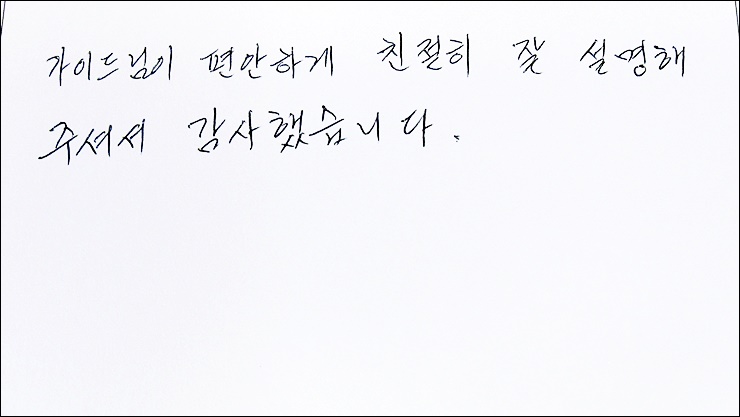 가이드님이 편안하게 친절히 잘 설명해
주셔서 감사했습니다.